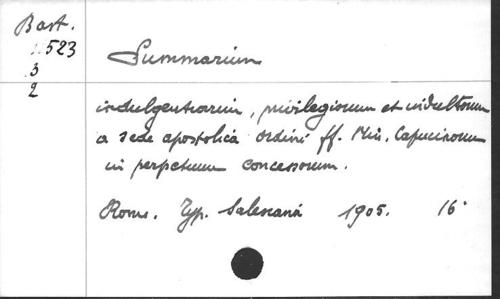 Bast.
523
3
2
Summarium
indulgentiarum, privilegiorum et indultorum
a sede apostolica Ordini ff. Min. Capucinorum
in perpetuum concessorum.
Roma. Typ. Salesiana 1905. 16°